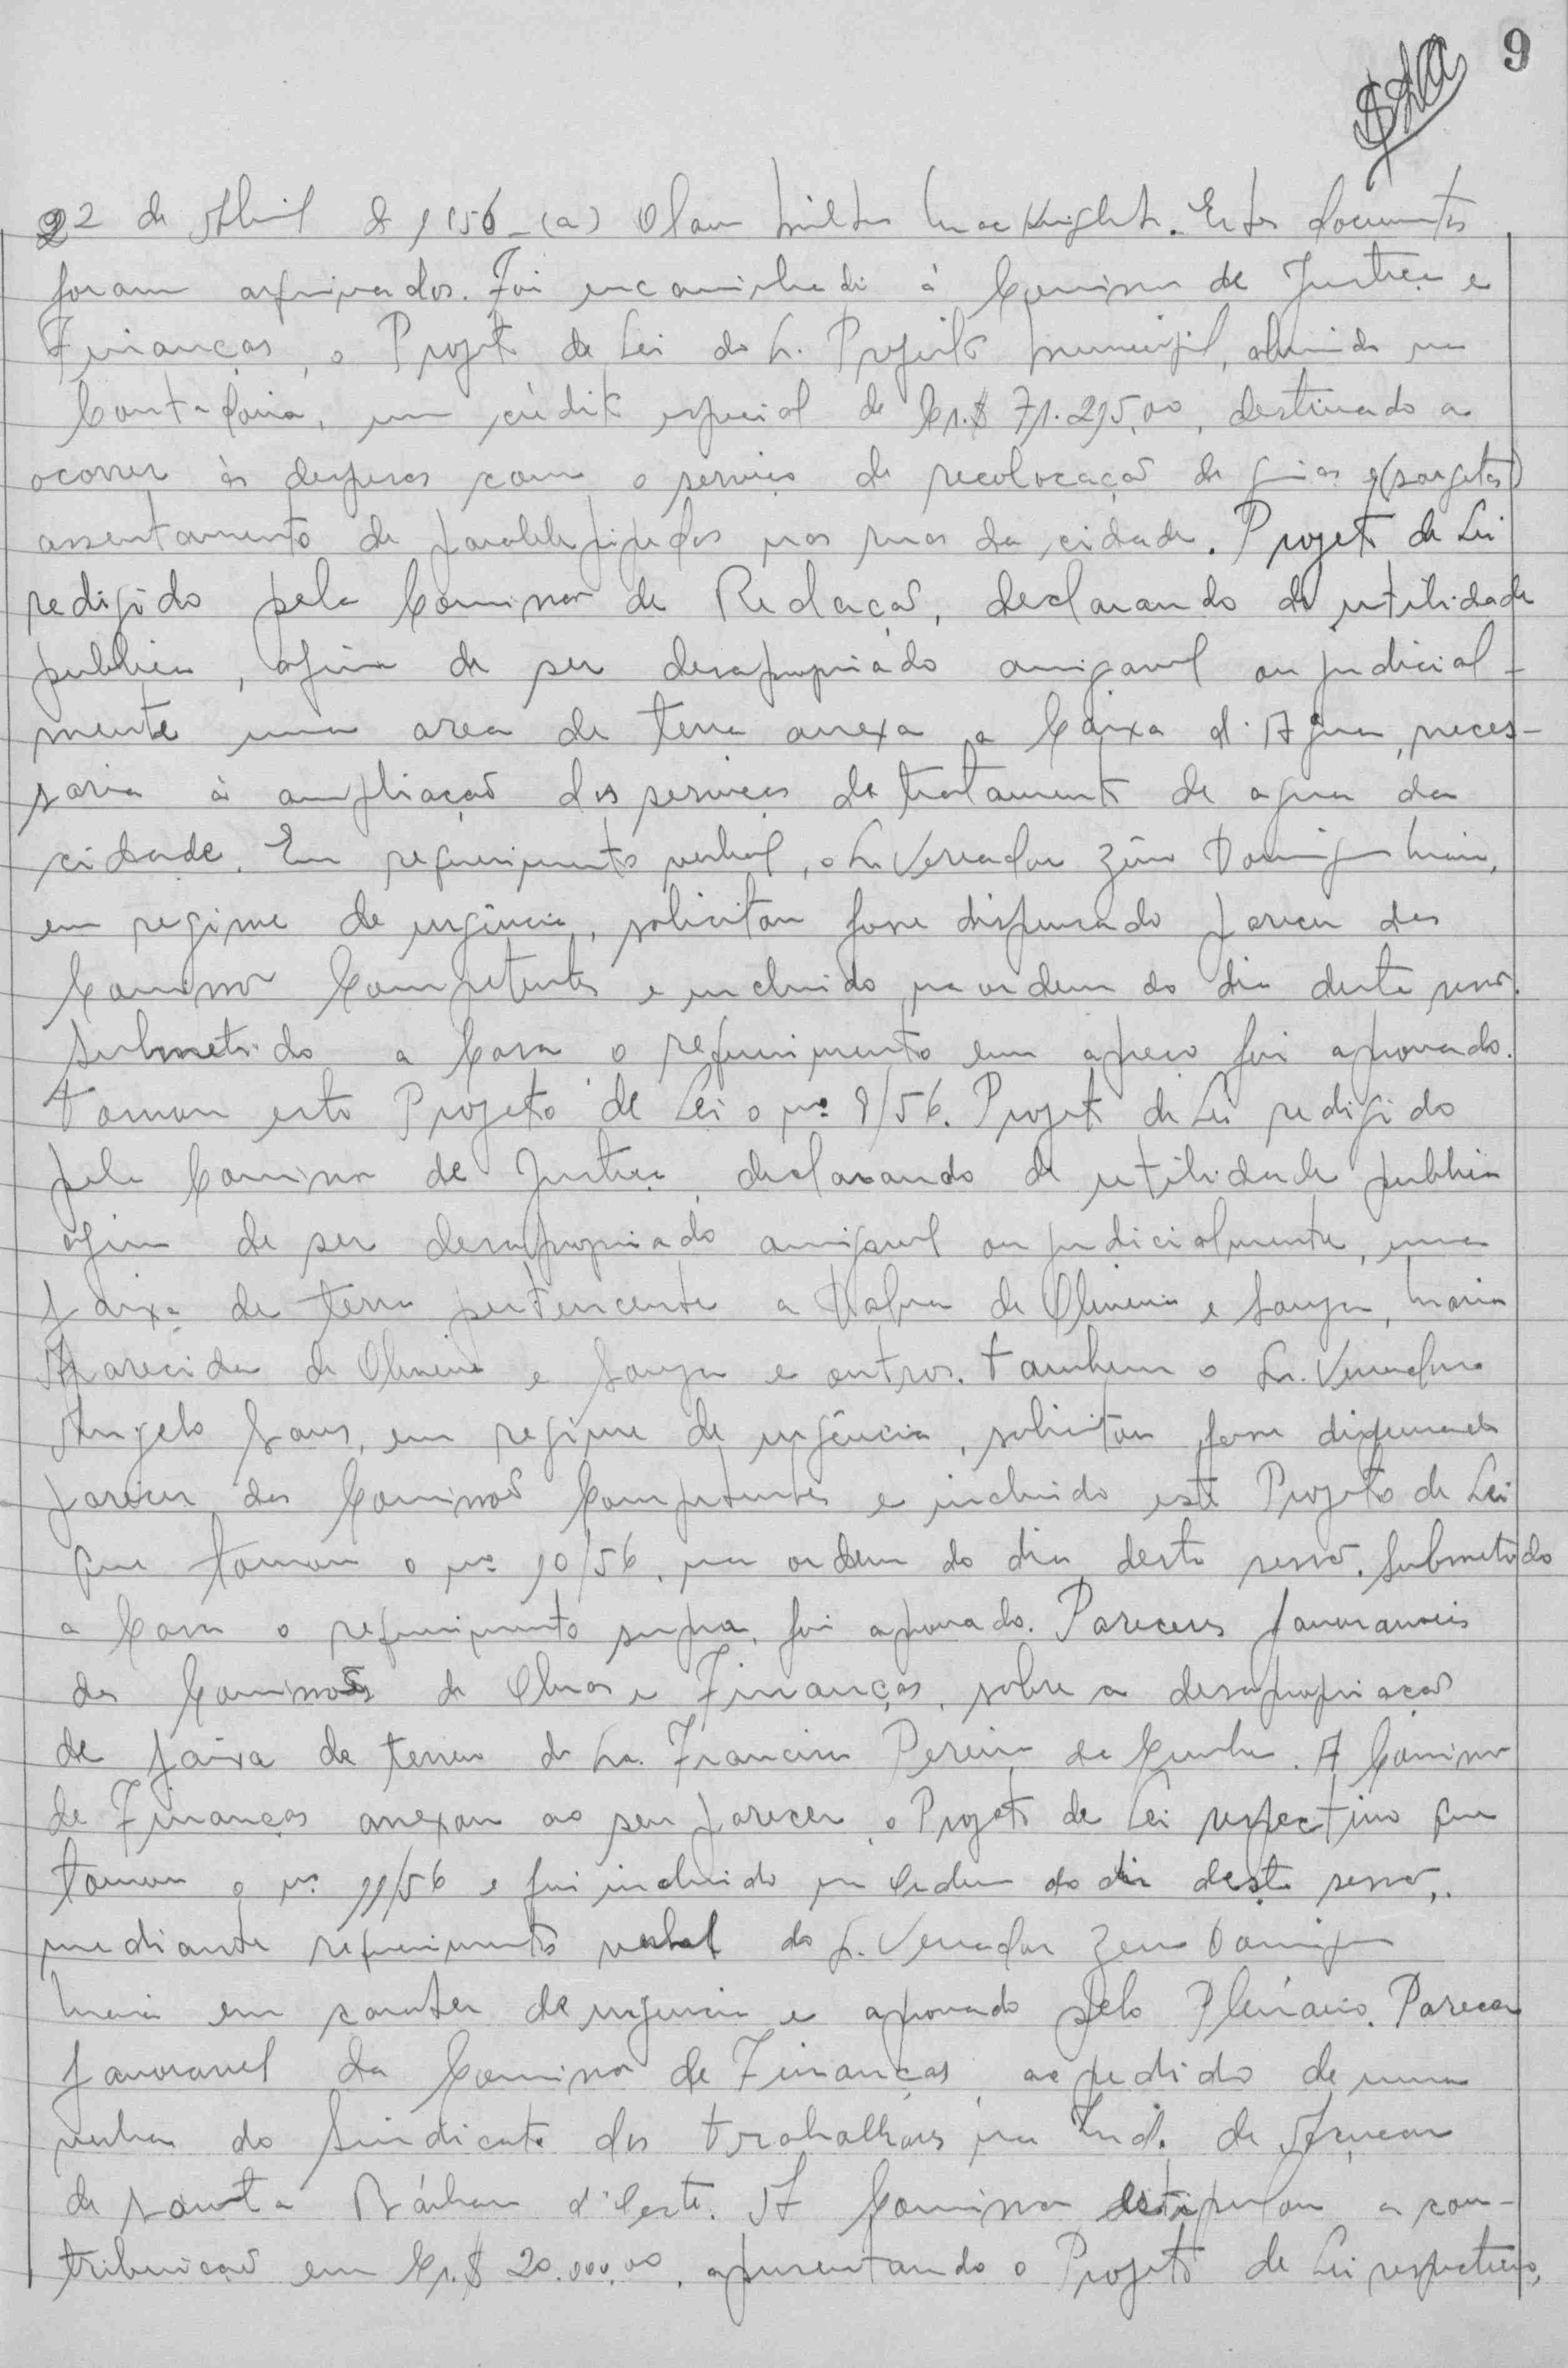 9
22 de Abril de 1956 - (a) Olavo Milton Mac Knight. Estes documentos
foram arquivados. Foi encaminhado à Comissão de Justiça e
Finanças, o Projeto de Lei do Sr. Prefeito Municipal, abrindo na
Contadoria, um crédito especial de Cr.$ 71.215,00, destinado a
ocorrer às despesas com o serviço de recolocação de guias e (sargetas)
assentamento de paralelepipedos nas ruas da cidade. Projeto de Lei
redigido pela Comissão de Redação, declarando de utilidade
publica, afim de ser desapropriado amigavel ou judicial-
mente uma area de terra anexa a Caixa d'Agua, neces-
saria à ampliação dos serviços de tratamento de agua da
cidade. Em requerimento verbal, o Sr. Vereador Zeno Domingues Maia,
em regime de urgência, solicitou fosse dispensado parecer das
Comissões Competentes e incluido na ordem do dia desta sessão.
Submetido a Casa o requerimento em apreço foi aprovado.
Tomou este Projeto de Lei o nº 9/56. Projeto de Lei redigido
pela Comissão de Justiça, declarando de utilidade publica
afim de ser desapropriado amigavel ou judicialmente, uma
faixa de terra pertencente a de Oliveira e Souza, Maria
Aparecida de Oliveira e Souza e outros. Tambem o Sr. Vereador
Angelo Sans, em regime de urgência, solicitou fosse dispensado
parecer das Comissões Competentes e incluido este Projeto de Lei
que tomou o nº 10/56, na ordem do dia desta sessão. Submetido
a Casa o requerimento supra, foi aprovado. Pareceres favoraveis
das Comissões de Obras e Finanças, sobre a desapropriação
de faixa de terreno do Sr. Francisco Pereira da Cunha. A Comissão
de Finanças anexou ao seu parecer o Projeto de Lei respectivo que
tomou o nº 11/56 e foi incluido na Ordem do dia desta sessão,
mediante requerimento verbal do Sr. Vereador Zeno Domingues
Maia em carater de urgencia e aprovado pelo Plenário. Parecer
favoravel da Comissão de Finanças, ao pedido de uma
verba do Sindicato dos Trabalhadores na Ind. de Açucar
de Santa Bárbara d'Oeste. A Comissão estipulou a con-
tribuição em Cr.$ 20.000,00, apresentando o Projeto de Lei respectivo,